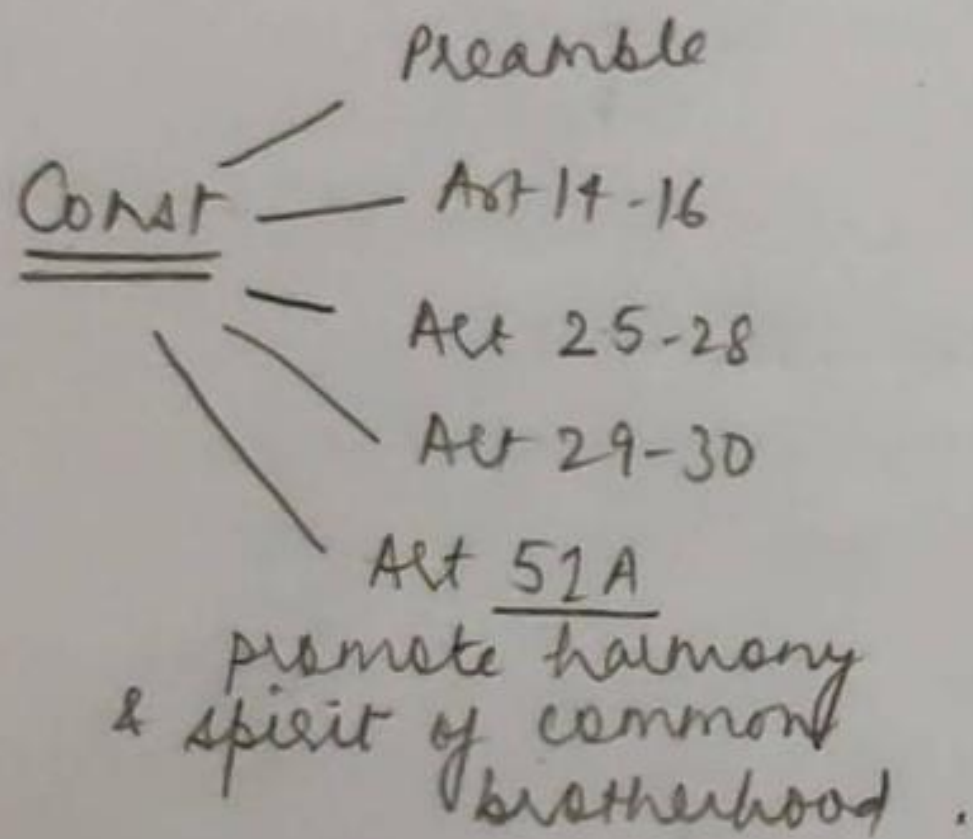 Preamble
Const
Art 14-16
Art 25-28
Art 29-30
Art 51A
promote harmony
& spirit of common
brotherhood.